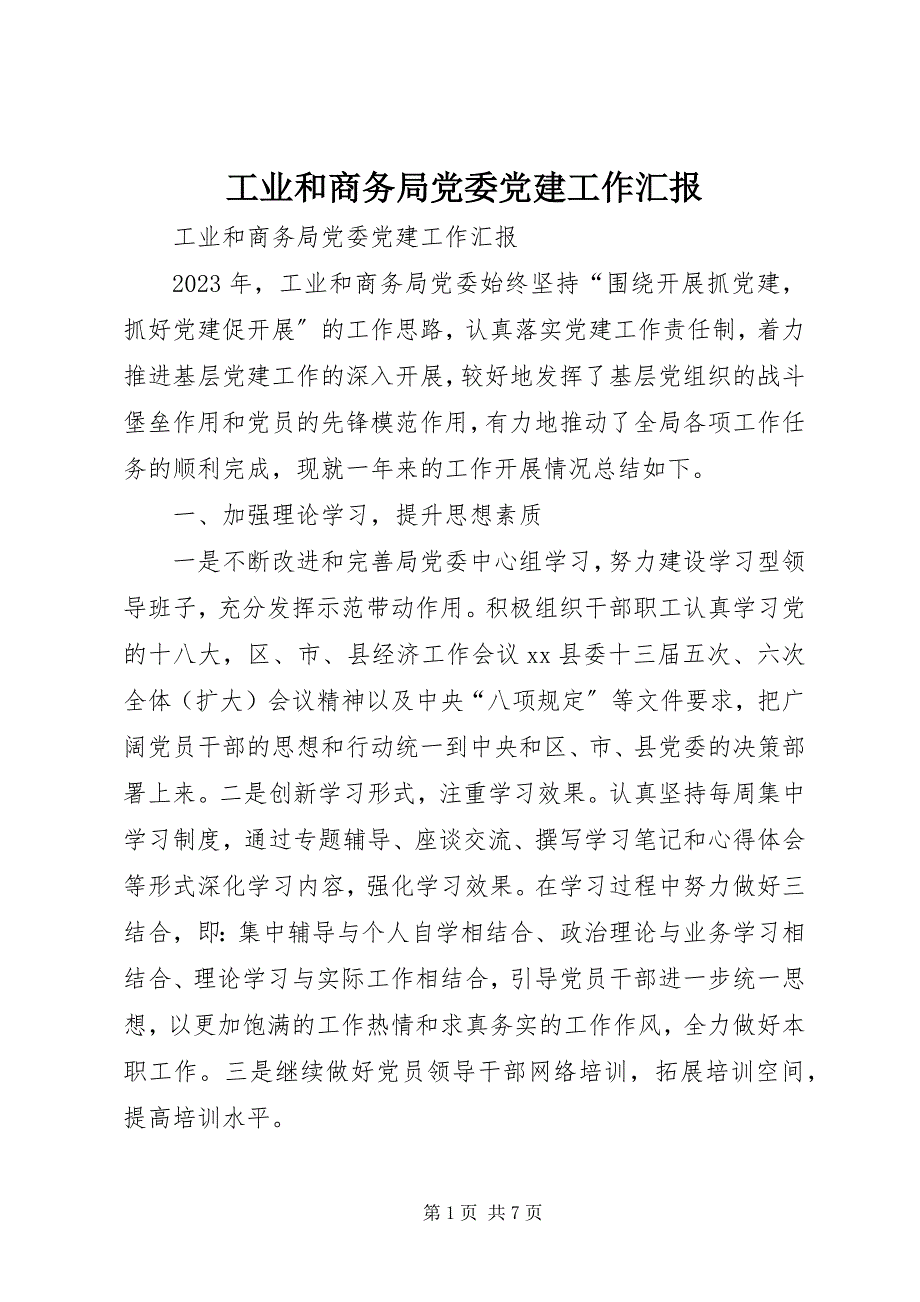 工业和商务局党委党建工作汇报
工业和商务局党委党建工作汇报
2023 年，工业和商务局党委始终坚持“围绕开展抓党建，
抓好党建促开展〞的工作思路，认真落实党建工作责任制，着力
推进基层党建工作的深入开展，较好地发挥了基层党组织的战斗
堡垒作用和党员的先锋模范作用，有力地推动了全局各项工作任
务的顺利完成，现就一年来的工作开展情况总结如下。
一、加强理论学习，提升思想素质
一是不断改进和完善局党委中心组学习，努力建设学习型领
导班子，充分发挥示范带动作用。积极组织干部职工认真学习党
的十八大，区、市、县经济工作会议 xx 县委十三届五次、六次
全体（扩大）会议精神以及中央“八项规定〞等文件要求，把广
阔党员干部的思想和行动统一到中央和区、市、县党委的决策部
署上来。二是创新学习形式，注重学习效果。认真坚持每周集中
学习制度，通过专题辅导、座谈交流、撰写学习笔记和心得体会
等形式深化学习内容，强化学习效果。在学习过程中努力做好三
结合，即：集中辅导与个人自学相结合、政治理论与业务学习相
结合、理论学习与实际工作相结合，引导党员干部进一步统一思
想，以更加饱满的工作热情和求真务实的工作作风，全力做好本
职工作。三是继续做好党员领导干部网络培训，拓展培训空间，
提高培训水平。
第 1 页 共 7 页